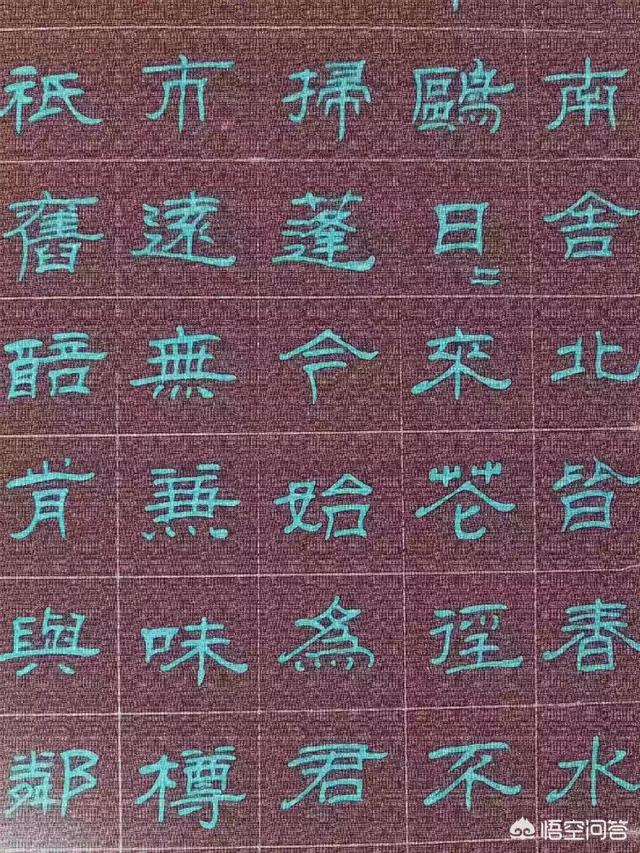 南舍北皆春水
鷗日二來花徑不
掃蓬今始為君
市遠無兼味樽
祇舊醅肯與鄰
悟空问答